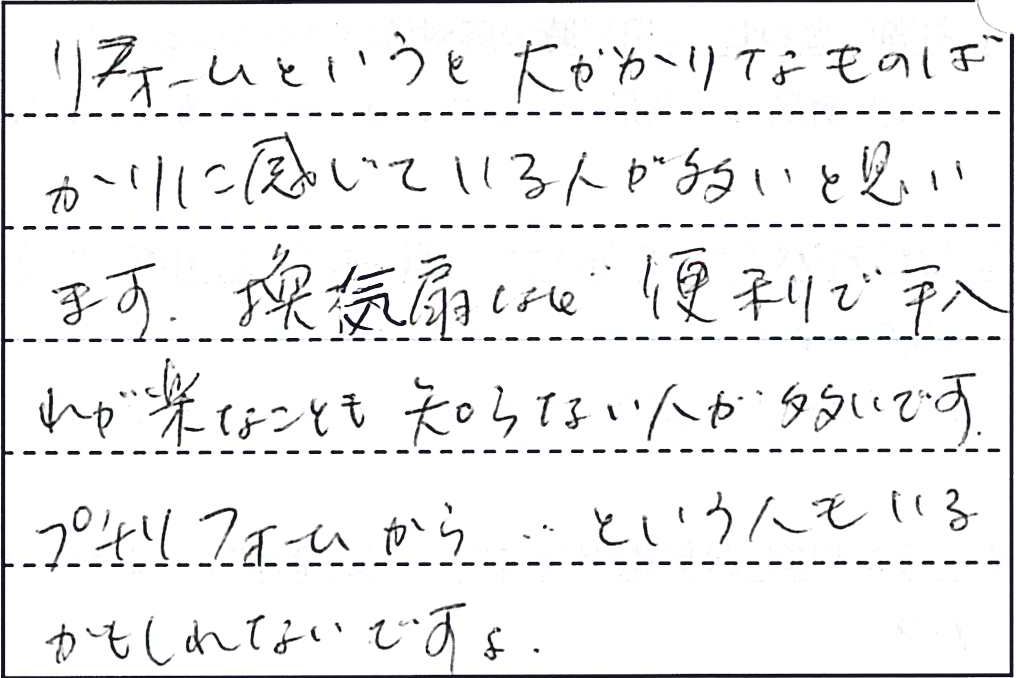 リフォームというと大がかりなものば
かりに感じている人が多いと思い
ます. 換気扇など便利で手入
れが楽なことも知らない人が多いです.
プチリフォームから‥という人もいる
かもしれないですよ.